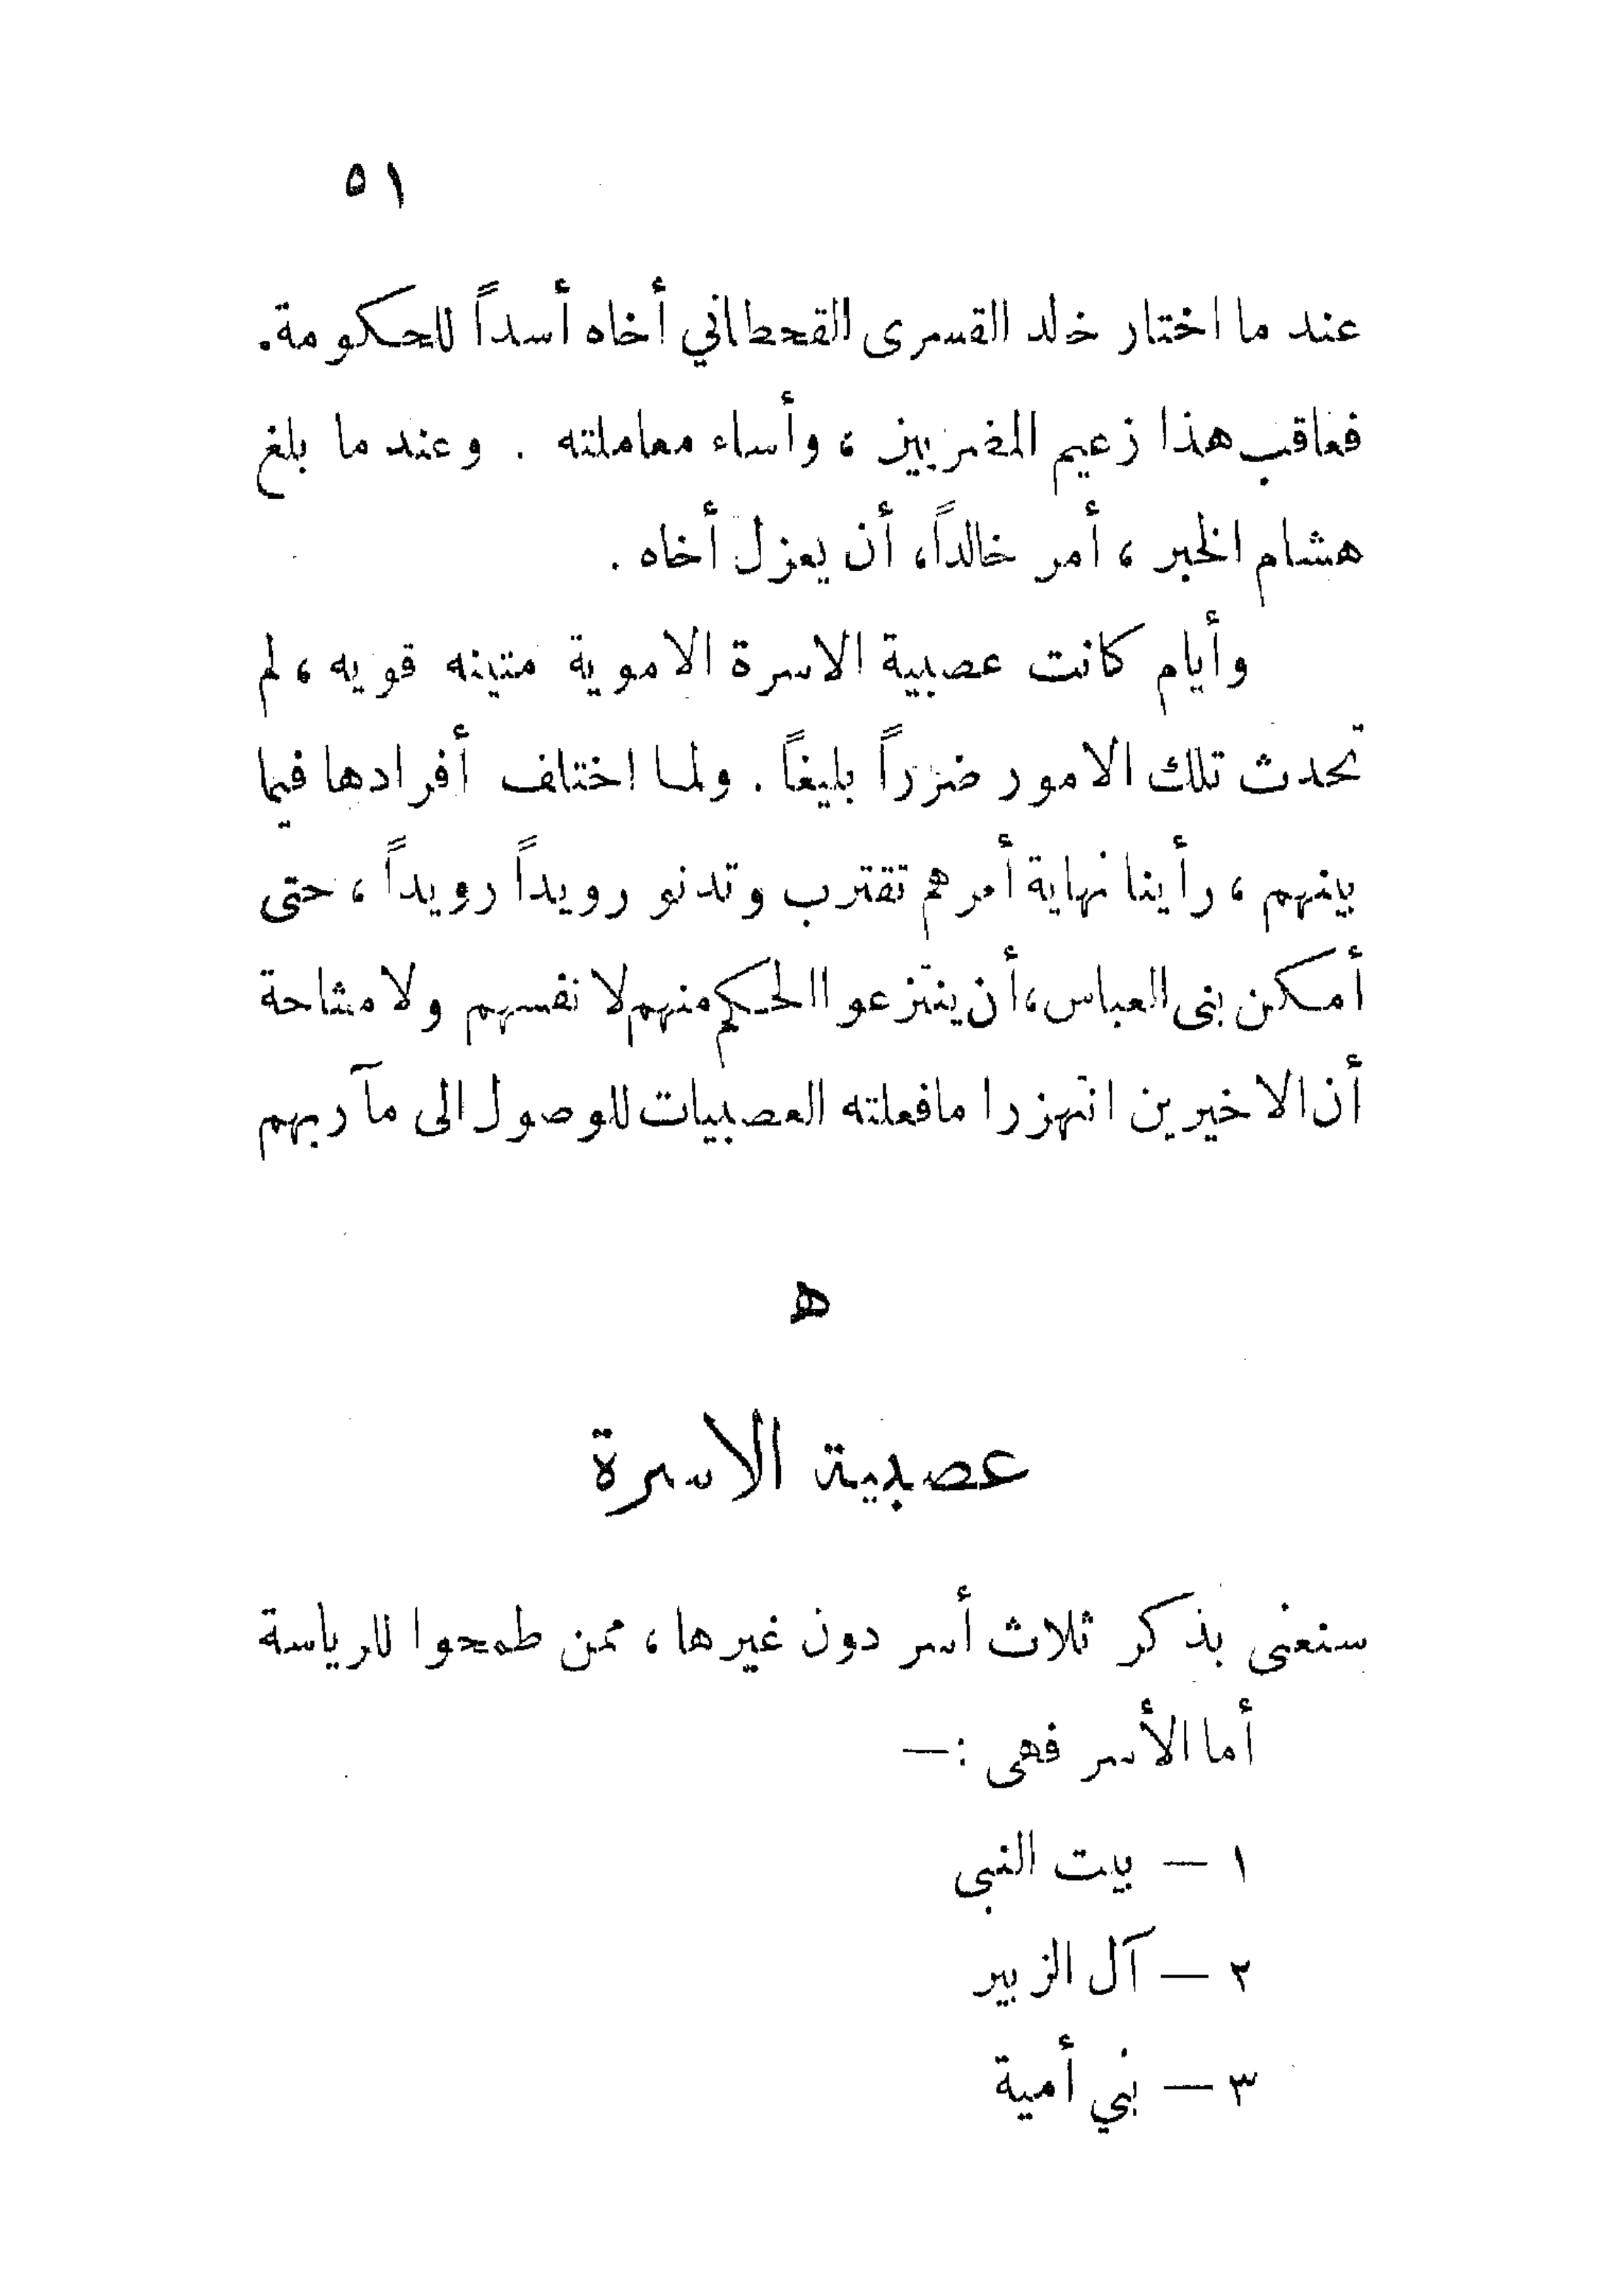 ٥١
عند ما اختار خالد القسرى القحطاني أخاه أسداً للحكومة.
فعاقب هذا زعيم المضريين ، وأساء معاملته . وعند ما بلغ
هشام الخبر ، أمر خالداً، أن يعزل أخاه .
وأيام كانت عصبية الاسرة الاموية متينه قويه ، لم
تحدث تلك الامور ضرراً بليغاً . ولما اختلف أفرادها فيما
بينهم ، رأينا نهاية أمرهم تقترب وتدنو رويداً رويداً ، حتى
أمكن بنى العباس، أن ينتزعوا الحكم منهم لا نفسهم ولا مشاحة
أن الاخيرين انتهزرا مافعلته العصبيات للوصول الى مآربهم
ه
عصبية الاسرة
سنعنى بذكر ثلاث أسر دون غيرها ، ممن طمحوا للرياسة
أما الأسر فهى : —
١ — بيت النبى
٢ — آل الزبير
٣ — بني أمية